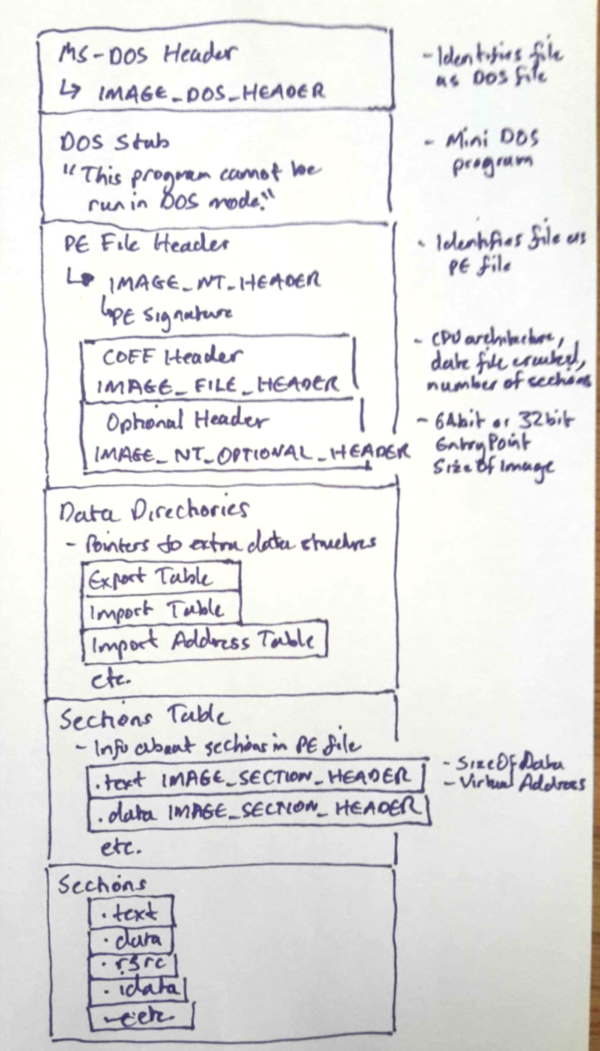 MS-DOS Header
↳ IMAGE_DOS_HEADER
- Identifies file
as DOS file
DOS Stub
"This program cannot be
run in DOS mode."
- Mini DOS
program
PE File Header
↳ IMAGE_NT_HEADER
↳ PE Signature
- Identifies file as
PE file
COFF Header
IMAGE_FILE_HEADER
- CPU architecture,
date file created,
number of sections
Optional Header
IMAGE_NT_OPTIONAL_HEADER
- 64bit or 32bit
EntryPoint
Size Of Image
Data Directories
- Pointers to extra data structures
Export Table
Import Table
Import Address Table
etc.
Sections Table
- Info about sections in PE file
.text IMAGE_SECTION_HEADER
.data IMAGE_SECTION_HEADER
etc.
- SizeOfData
- Virtual Address
Sections
.text
.data
.rsrc
.idata
etc